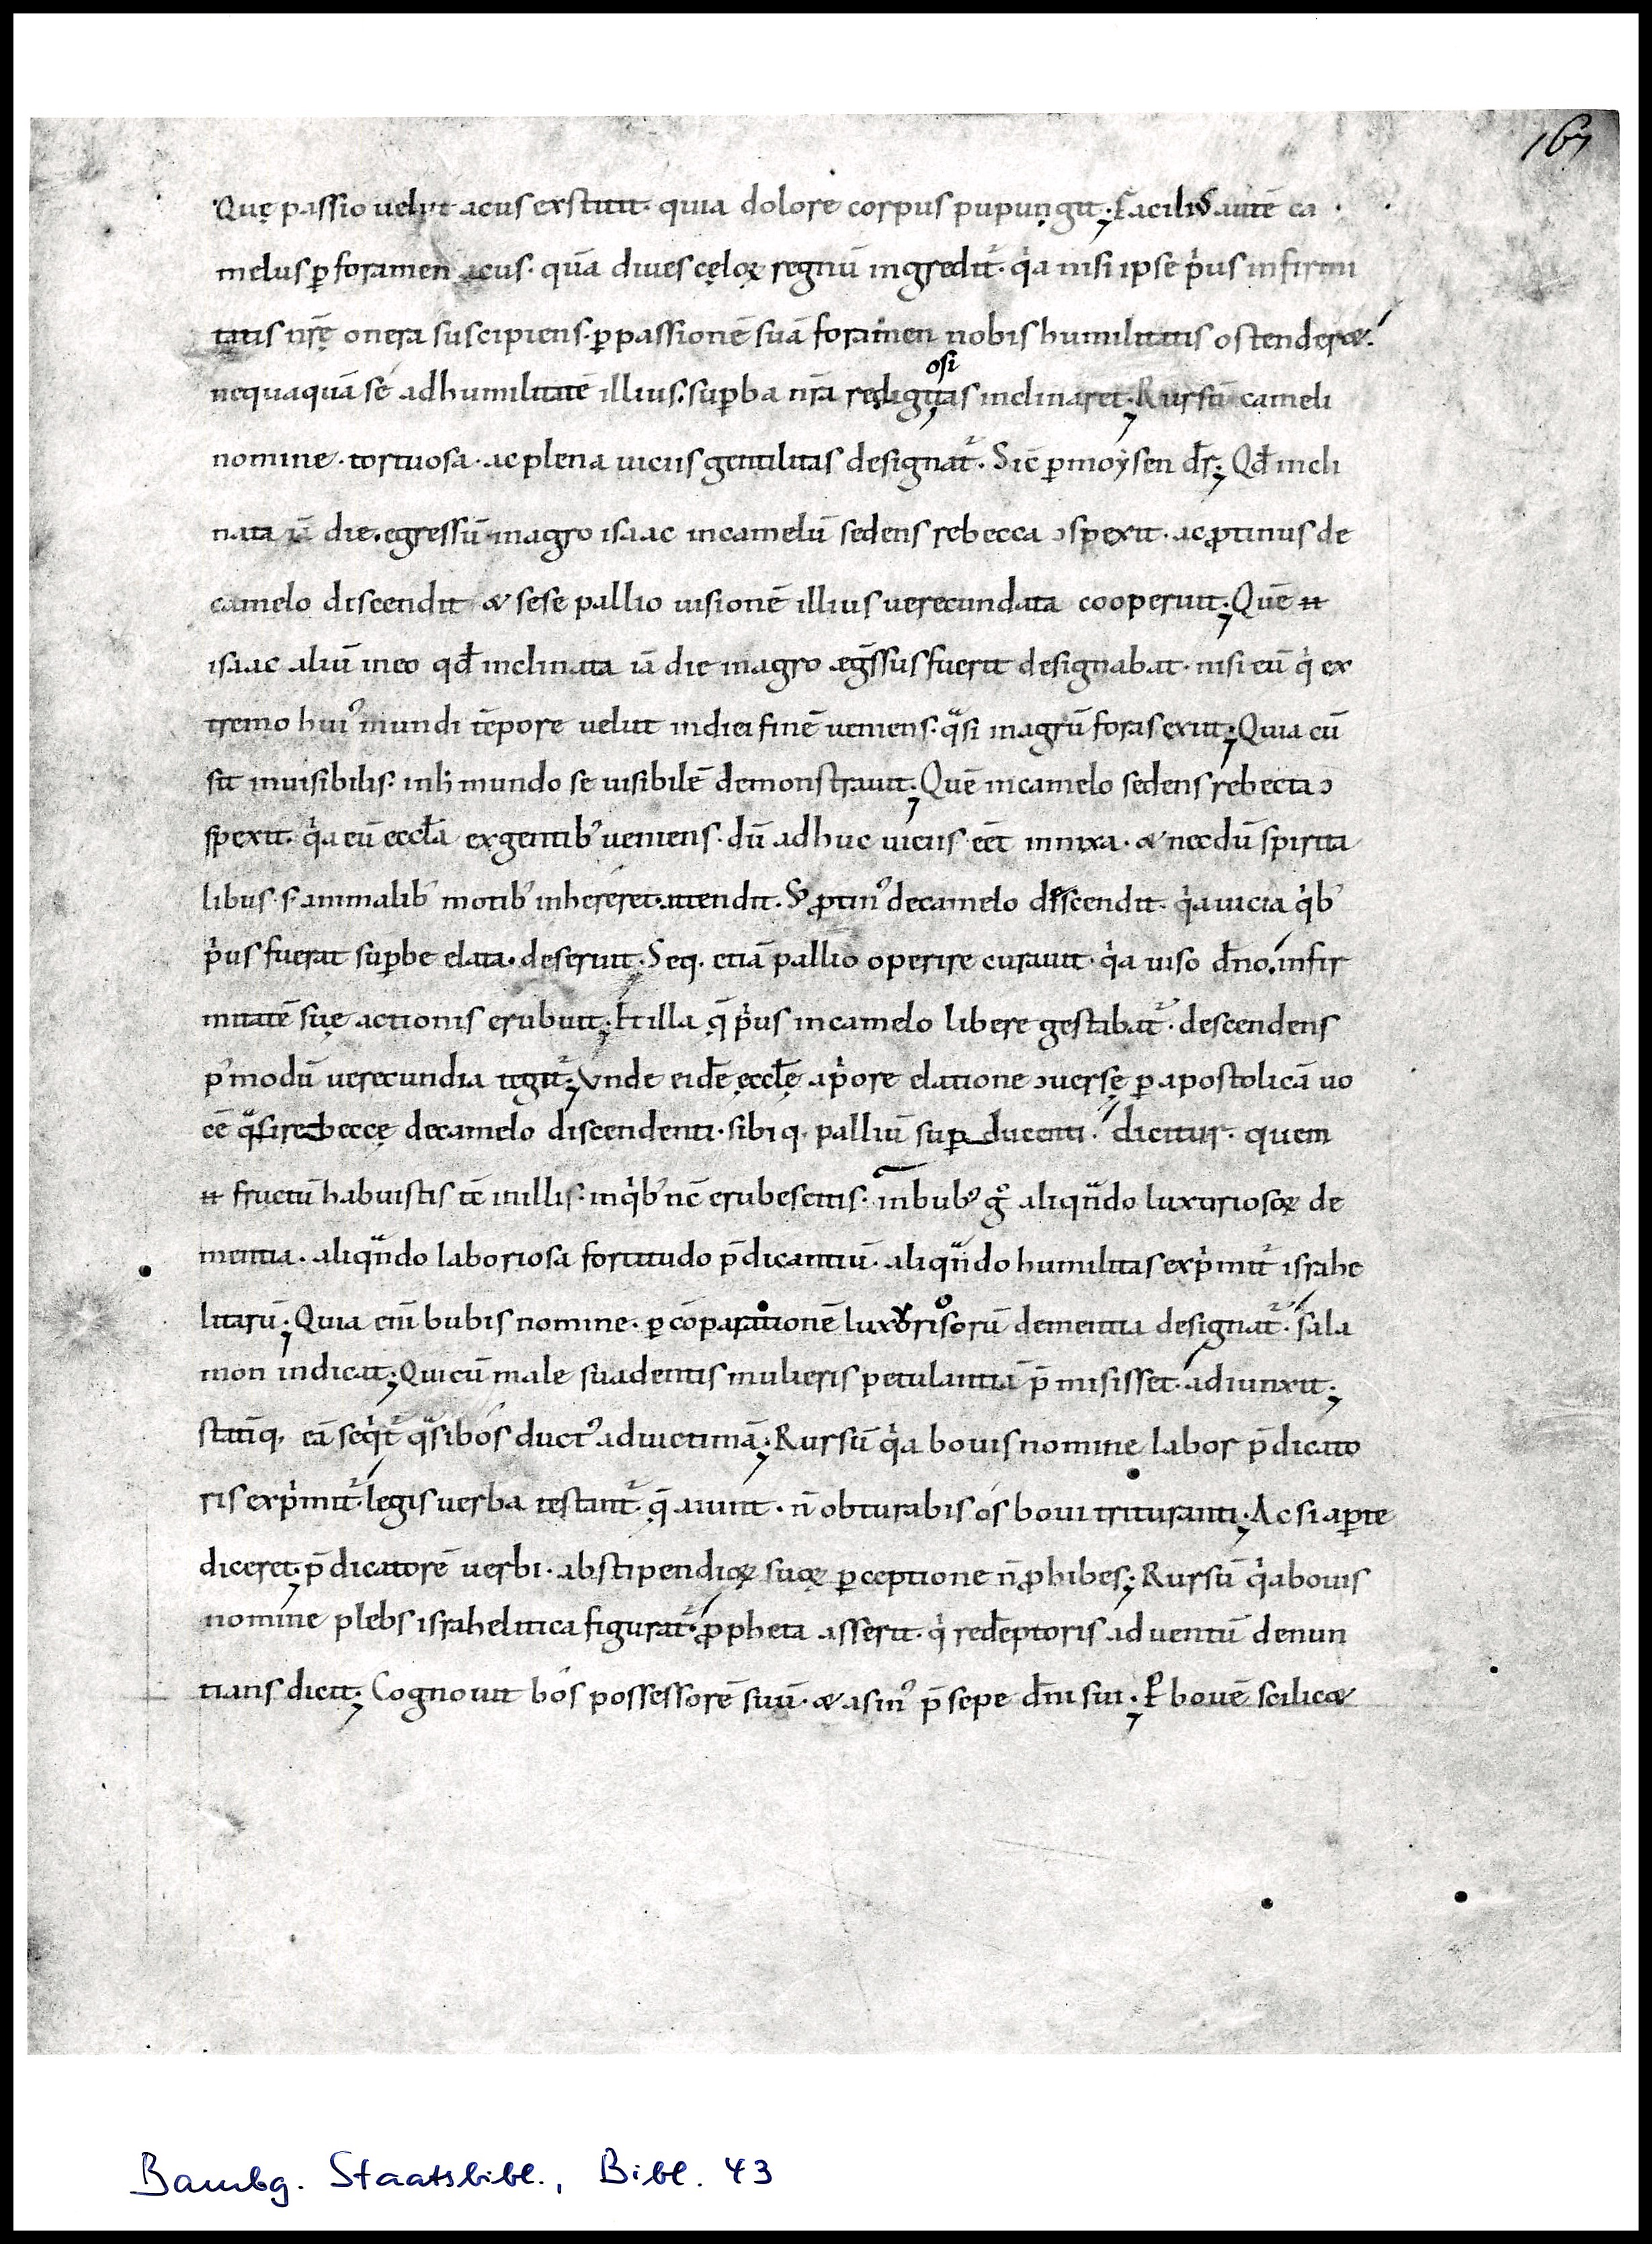 167
Quę passio velut acus exstitit· quia dolore corpus pupungit; Facilis autē ca
melus ꝑ foramen acus· quā dives cęloꝝ regnū ingredit᷑· qͥa nisi ipse pͥus infirmi
tatis nr̄ę onera suscipiens· ꝑ passionē suā foramen nobis humilitatis ostenderet·
nequaquā se ad humilitatē illius· suꝑba nr̄a rediguitas inclinaret; Rursū cameli
osi
nomine· tortuosa· ac plena viciis gentilitas designat᷑· Sic̄ ꝑ moẏsen dr̄; Qđ incli
nata iā die· egressū in agro isaac in camelū sedens rebecca ɔspexit· ac ꝓtinus de
camelo discendit & sese pallio visionē illius verecundata cooperuit; Quē n̄
isaac aliū in eo qđ inclinata iā die in agro ægs̄sus fuerit designabat· nisi eū qͥ ex
tremo huiꝰ mundi tēpore velut in diei finē veniens· qͣsi in agrū foras exiit; Quia cū
sit invisibilis· in h̓ mundo se visibilē demonstravit; Quē in camelo sedens rebecca ɔ
spexit· qͥa eū eccłā ex gentibꝰ veniens· dū adhuc viciis eēt innixa· & necdū spirita
libus· s· animalibꝰ motibꝰ inhereret· attendit· Sꝫ ꝓtinꝰ de camelo descendit· qͥa vicia qͥbꝰ
pͥus fuerat suꝑbe elata· deseruit· Seq· etiā pallio operire curavit· qͥa viso dn̄o· infir
mitatē suę actionis erubuit; Et illa q̄ pͥus in camelo libere gestabat᷑· descendens
pꝰmodū verecundia tegit᷑; Unde eidē ęccłę a pͥore elatione ɔversę ꝑ apostolicā vo
cē qͣsi rebeccę de camelo discendenti· sibiq· palliū suꝑ ducenti· dicitur· quem
n̄ fructū habuistis tc̄ in illis· in qͥbꝰ nc̄ erubescitis· in bubꝰ gͦ aliqn̄do luxuriosoꝝ de
mentia· aliqn̄do laboriosa fortitudo p̄dicantiū· aliqn̄do humilitas expͥmit᷑ israhe
litarū; Quia eni bubis nomine· ꝑ cōparationē luxoriosorū dementia designat᷑· sala
mon indicat; Qui cū male suadentis mulieris petulantiā p̄ misisset· adiunxit;
statīq· eā seqͥt᷑ qͣsi bos ductꝰ ad victimā; Rursū qͥa bovis nomine labor p̄dicato
ris expͥmit᷑· legis verba testant᷑· q̄ aiunt· n̄ obturabis os bovi trituranti; Ac si aꝑte
diceret· p̄dicatorē verbi· ab stipendioꝝ suoꝝ ꝑceptione n̄ ꝓhibes; Rursū qͥa bovis
nomine plebs israhelitica figurat᷑· ꝓpheta asserit· qͥ redēptoris adventū denun
tians dicit; Cognovit bos possessorē suū· & asinꝰ p̄sepe dn̄i sui; Ꝑ bovē scilicet
Bambg. Staatsbibl., Bibl. 43